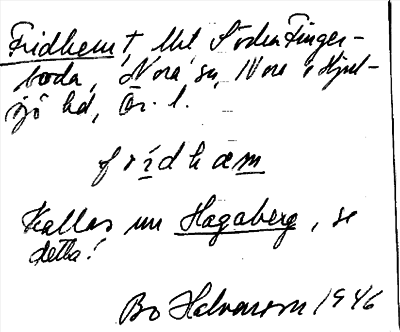 Fridhem†, Utl. Södra Finger-
boda, Nora sn, Nora o Hjul-
sjö hd, Ör. l.
fridhæm
Kallas nu Hagaberg, se
detta!
Bo Halvarson 1946